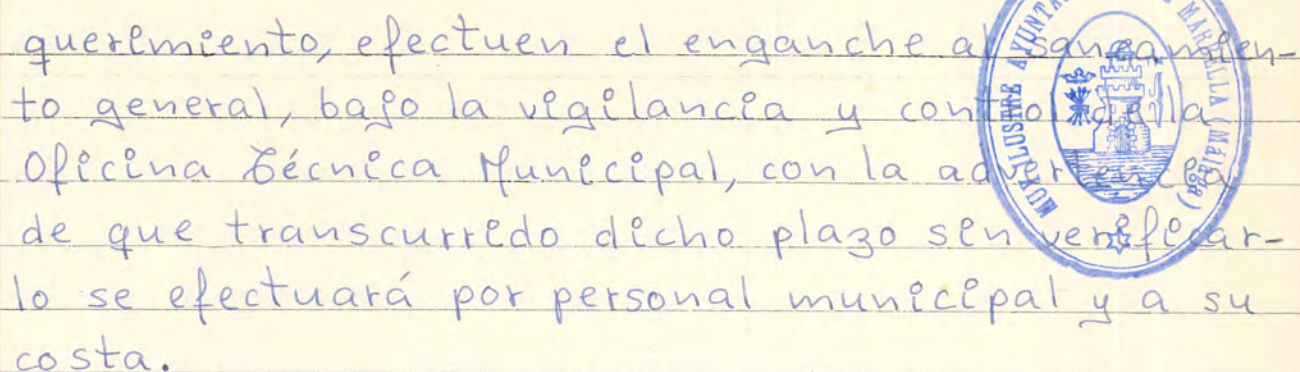 querimiento, efectuen el enganche al saneamien-
to general, bajo la vigilancia y control de la
Oficina Técnica Municipal, con la advertencia
de que transcurrido dicho plazo sin verificar-
lo se efectuará por personal municipal y a su
costa.
MUY ILUSTRE AYUNTA MARBELLA (Málaga)